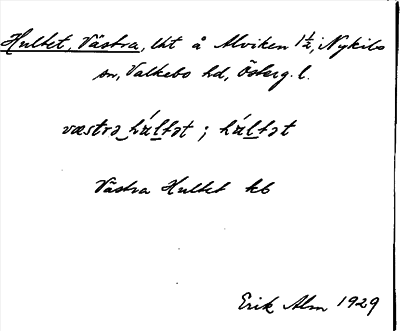 Hultet, Västra, lht å Alviken 1 1/2, Nykils
sn, Valkebo hd, Österg. l.
væstrə húltət ; húltət
Västra Hultet kb
Erik Alm 1929